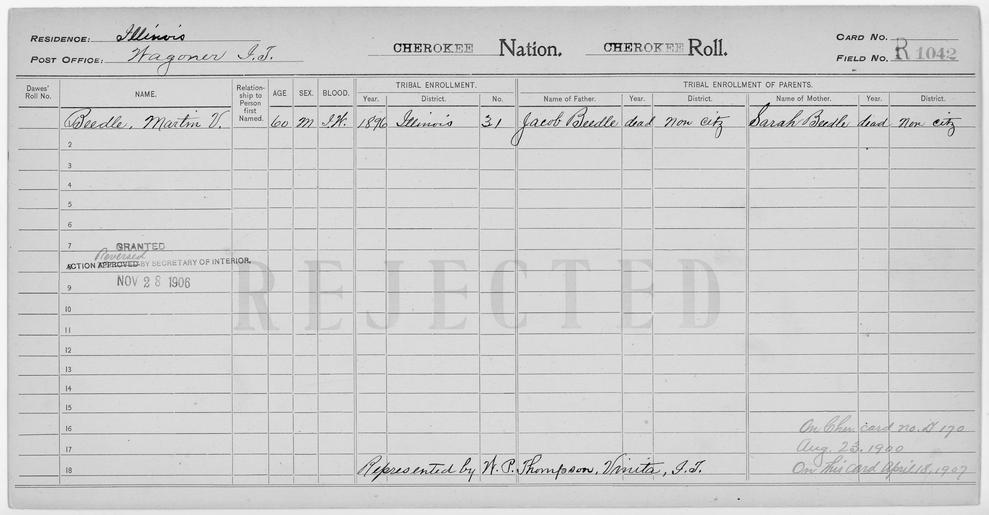 RESIDENCE: Illinois
POST OFFICE: Wagoner I.T.
CHEROKEE Nation. CHEROKEE Roll.
CARD NO.
FIELD NO. R 1042
Dawes' Roll No. NAME. Relationship to Person first Named. AGE SEX. BLOOD. TRIBAL ENROLLMENT. Year. District. No. TRIBAL ENROLLMENT OF PARENTS. Name of Father. Year. District. Name of Mother. Year. District.
Beedle, Martin V. 60 M I.W. 1896 Illinois 31 Jacob Beedle dead non citz Sarah Beedle dead non citz
2
3
4
5
6
7 GRANTED
Reversed
8 ACTION APPROVED BY SECRETARY OF INTERIOR.
9 NOV 28 1906
REJECTED
10
11
12
13
14
15
16 On Cher. card no. D 170
17 Aug. 23, 1900
18 Represented by W. P. Thompson, Vinita, I.T. On this card April 18, 1907